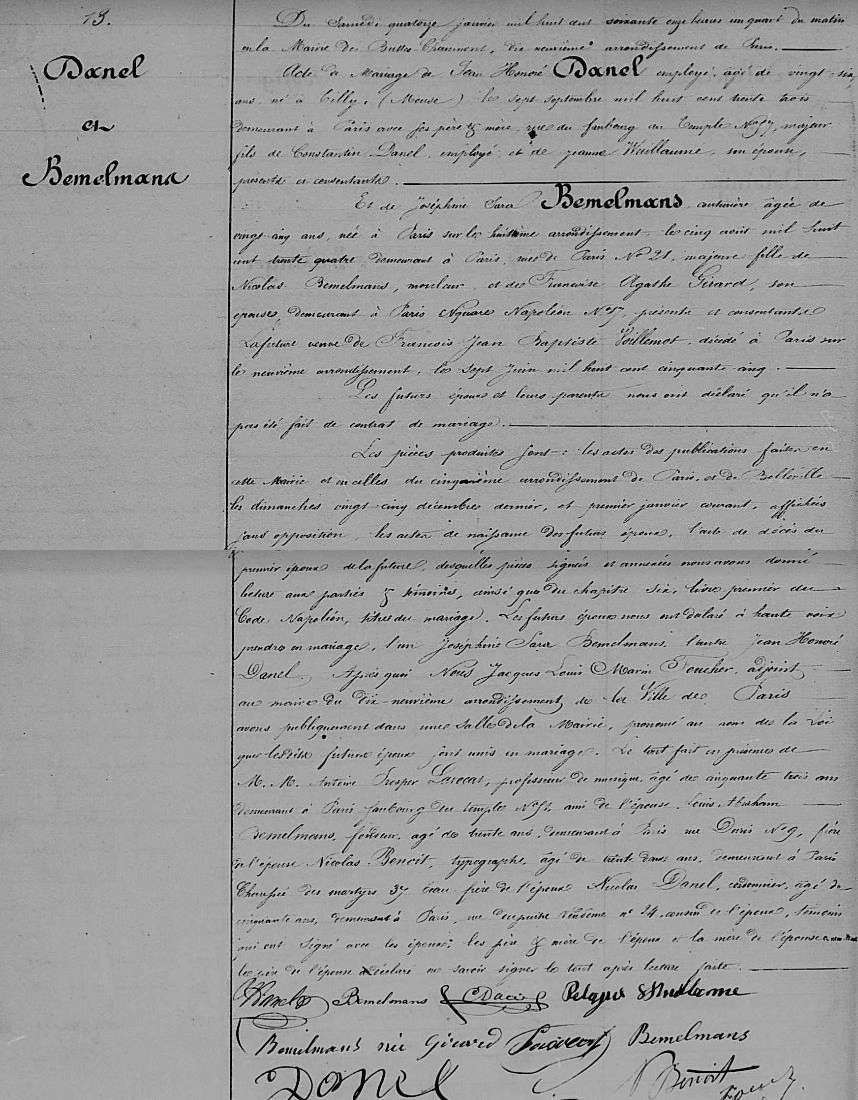 13.
Danel
et
Bemelmans
Du Samedi quatorze janvier mil huit cent soixante onze heures un quart du matin
en la Mairie des Buttes-Chaumont, dix neuvième arrondissement de Paris.
Acte de Mariage de Jean Honoré Danel employé, âgé de vingt-six
ans né à Tilly, (Meuse) le sept septembre mil huit cent trente trois
demeurant à Paris avec ses père & mère, rue du faubourg du Temple No majeur
fils de Constantin Danel, employé et de Jeanne Wuillaume, son épouse,
présents et consentants.
Et de Joséphine Sara Bemelmans couturière âgée de
vingt cinq ans, née à Paris sur le huitième arrondissement le cinq août mil huit
cent trente quatre demeurant à Paris, rue de Paris No 21, majeure fille de
Nicolas Bemelmans, mouleur, et de Françoise Agathe Gérard, son
épouse, demeurant à Paris Square Napoléon No présents et consentants
La future veuve de François Jean Baptiste décédé à Paris sur
le neuvième arrondissement, le sept Juin mil huit cent cinquante cinq.
Les futurs époux et leurs parents nous ont déclaré qu'il n'a
pas été fait de contrat de mariage.
Les pièces produites sont : les actes des publications faites en
cette Mairie et en celles du cinquième arrondissement de Paris, et de Belleville
les dimanches vingt cinq décembre dernier, et premier janvier courant, affichées
sans opposition, les actes de naissance des futurs époux, l'acte de décès du
premier époux de la future, desquelles pièces signées et annexées nous avons donné
lecture aux parties & témoins, ainsi que du chapitre six, livre premier du
Code Napoléon, titre du mariage. Les futurs époux nous ont déclaré à haute voix
prendre en mariage, l'un Joséphine Sara Bemelmans, l'autre Jean Honoré
Danel. Après quoi Nous Jacques Louis Marin Foucher, adjoint
au maire du dix-neuvième arrondissement de la Ville de Paris
avons publiquement dans une salle de la Mairie, prononcé au nom de la Loi
que lesdits futurs époux sont unis en mariage. Le tout fait en présence de
M. M. Antoine Prosper professeur de musique, âgé de cinquante trois ans
demeurant à Paris faubourg du temple No ami de l'épouse. Louis Abraham
Bemelmans, fondeur, âgé de trente ans, demeurant à Paris rue No 9, frère
de l'épouse Nicolas Benoit, typographe, âgé de trente deux ans, demeurant à Paris
Chaussée des martyrs 37 beau frère de l'époux Nicolas Danel, cordonnier, âgé de
cinquante ans, demeurant à Paris, rue no 24, cousin de l'époux, témoins
qui ont signé avec les époux, les père & mère de l'époux & la mère de l'épouse
le père de l'épouse a déclaré ne savoir signer le tout après lecture faite.
Danel Bemelmans Wuillaume
Bemelmans née Gérard Bemelmans
Danel N Benoit